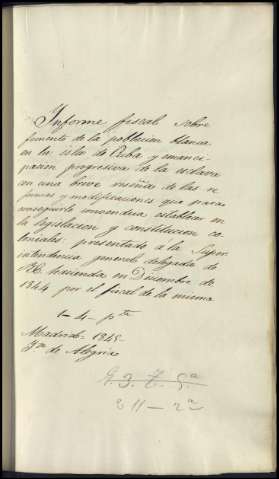 Informe fiscal sobre
fomento de la poblacion blanca
en la isla de Cuba y emanci-
pacion progresiva de la esclava
con una breve reseña de las re
formas y modificaciones que para
conseguirlo convendria establecer en
la legislacion y constitucion co-
loniales: presentado a la Super
intendencia general delegada de
Rl. hacienda en Diciembre de
1844 por el fiscal de la misma
Madrid 1845
Jn de Alegria
G. 3. 7. 5.a
211 - 2a